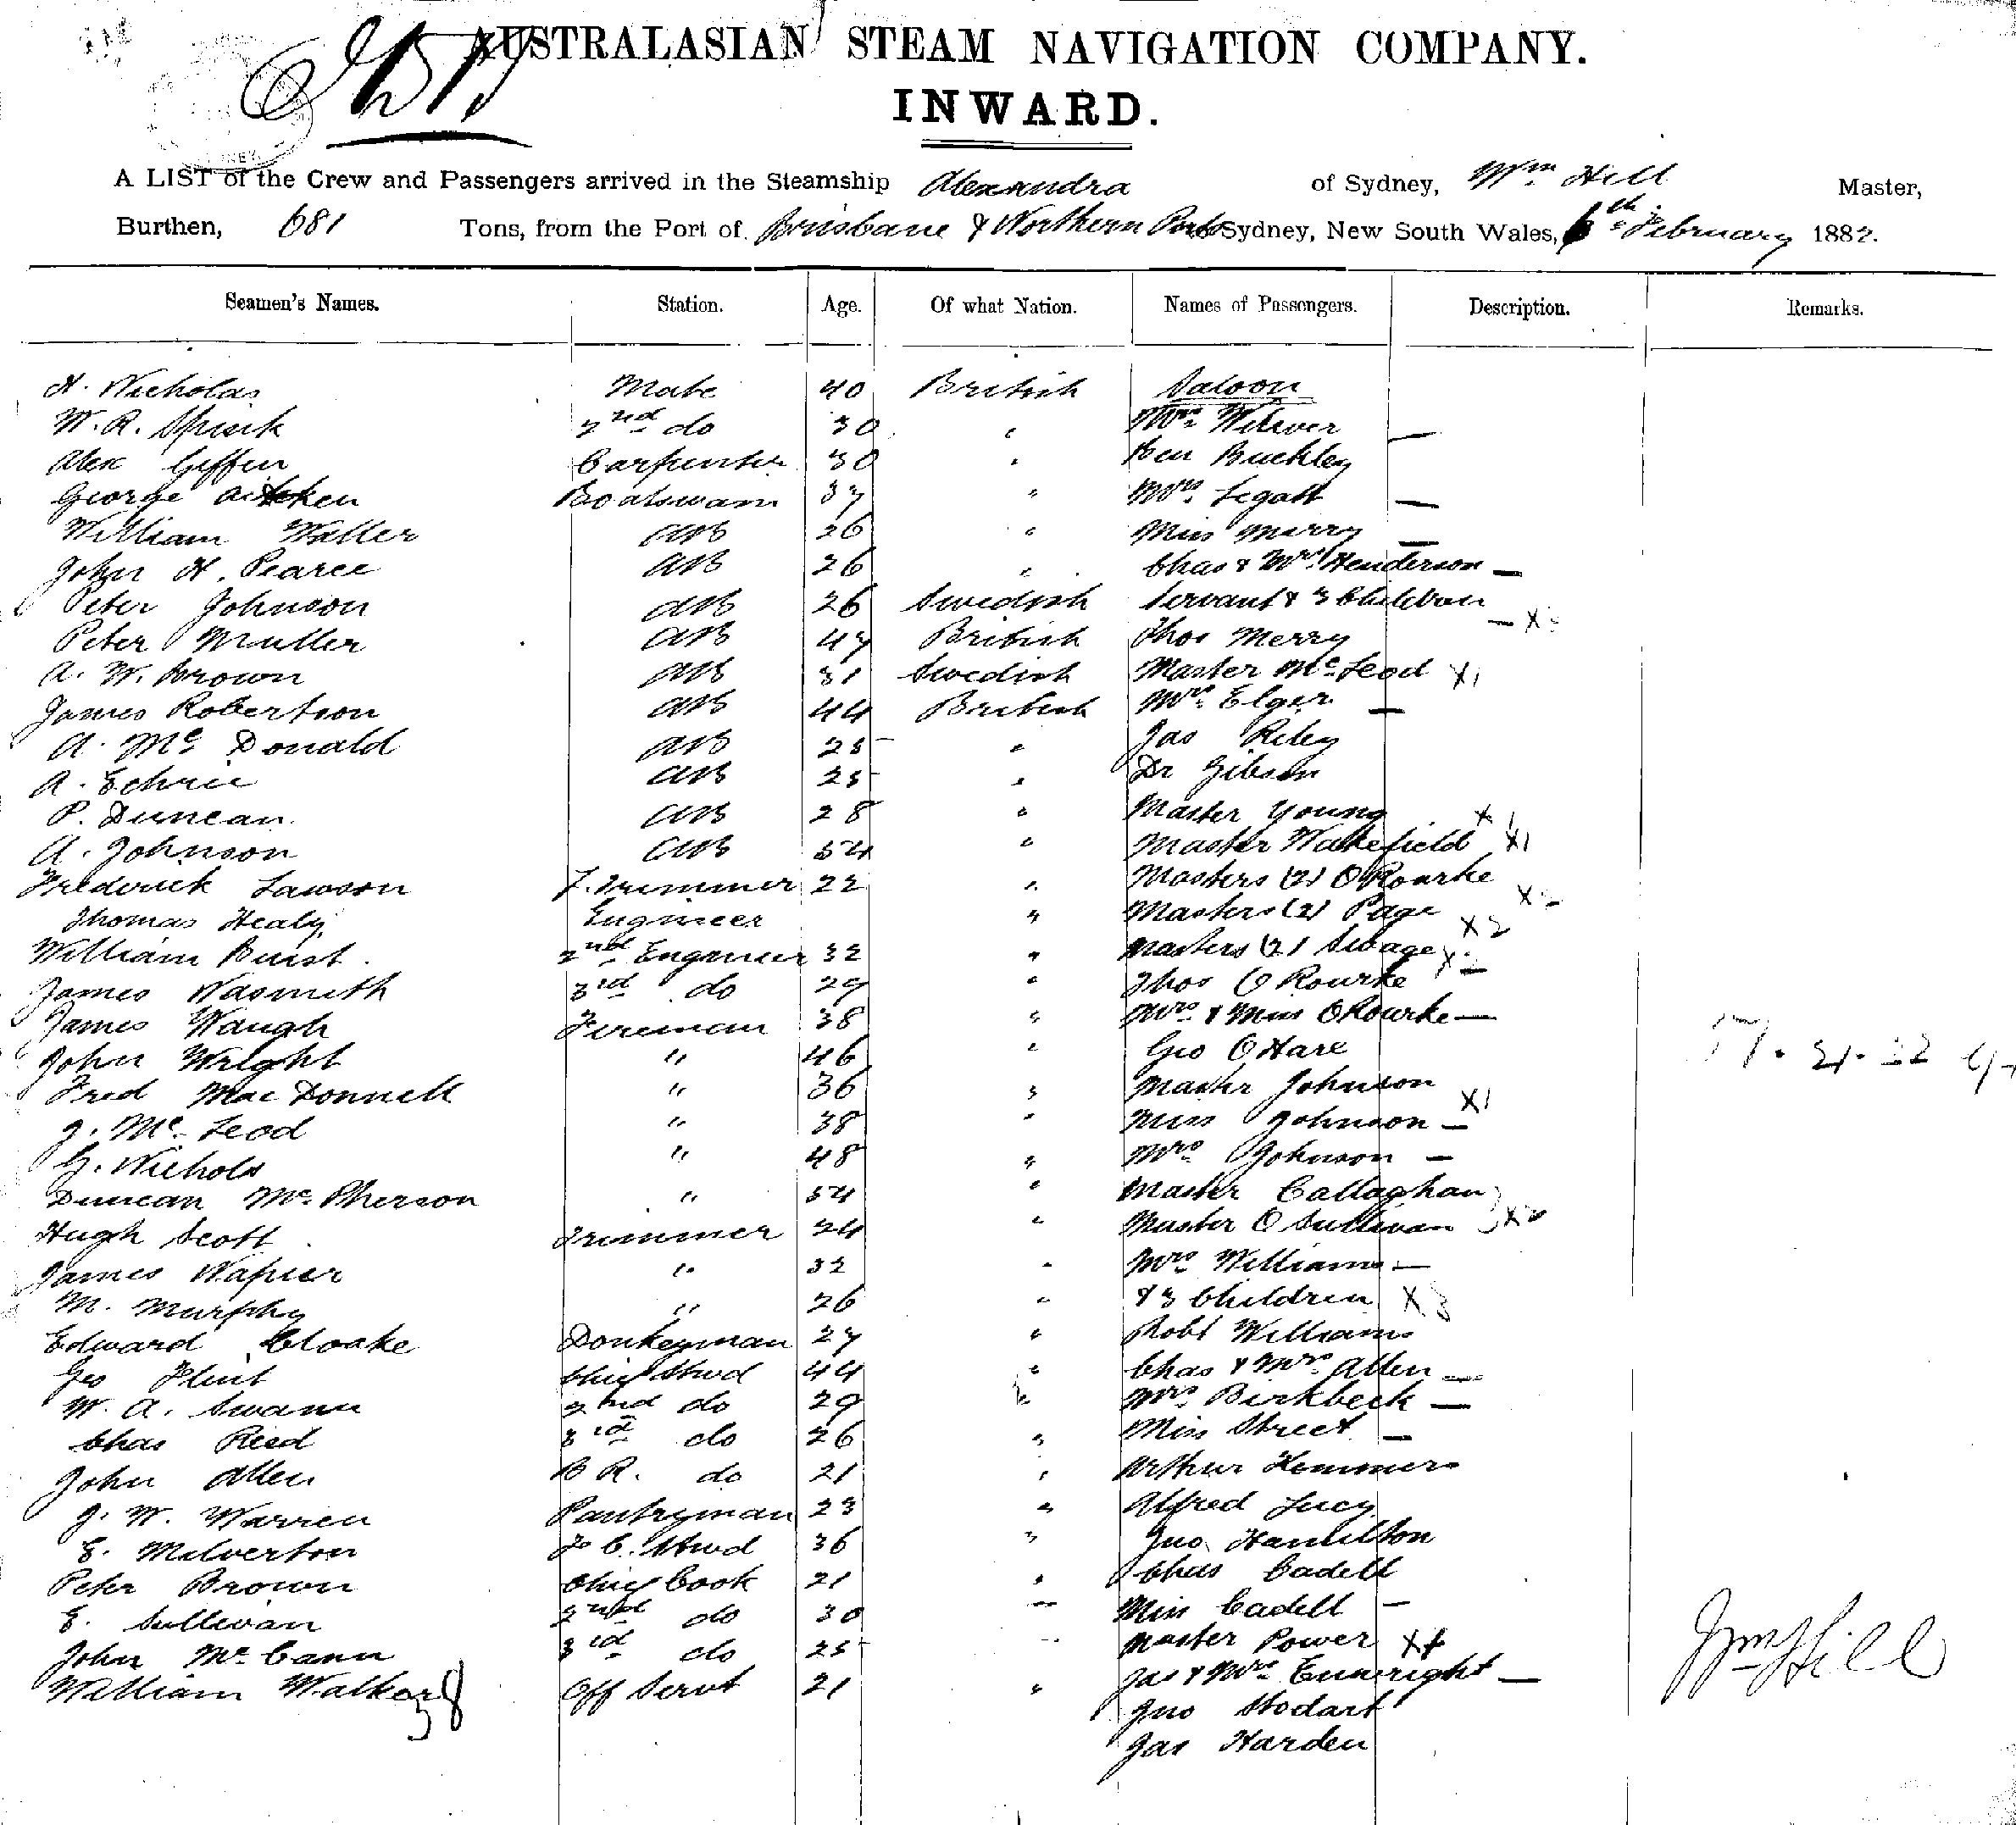 AUSTRALASIAN STEAM NAVIGATION COMPANY.
INWARD.
A LIST of the Crew and Passengers arrived in the Steamship Alexandra of Sydney, Wm Hill Master,
Burthen, 681 Tons, from the Port of Brisbane & Northern Ports to Sydney, New South Wales, 6th February 1882.
Seamen's Names. Station. Age. Of what Nation. Names of Passengers. Description. Remarks.
H. Nicholas Mate 40 British Saloon
W. R. Spink 2nd do 30 " Mrs
Alex Giffen Carpenter 30 " Ben Buckley
George Aitken Boatswain 37 " Mrs Legatt —
William Waller AB 26 " Miss Merry —
John H. Pearce AB 26 " Chas & Mrs Henderson —
Peter Johnson AB 26 Swedish Servant & 3 Children — X3
Peter Muller AB 47 British Thos Merry
A. W. Brown AB 31 Swedish Master McLeod X1
James Robertson AB 44 British Mrs Elger —
A. McDonald AB 25 " Jas Riley
A. AB 25 " Dr Gibson
P. Duncan AB 28 " Master Young X1
A. Johnson AB 54 " Master Wakefield X1
Frederick Lawson F. Trimmer 22 " Masters (2) O'Rourke X2
Thomas Healy Engineer " Masters (2) Page X2
William Buist 2nd Engineer 32 " Masters (2) X2
James Wasmuth 3rd do 29 " Thos O'Rourke
James Waugh Fireman 38 " Mrs & Miss O'Rourke —
John Wright " 46 " Geo O'Hare
Fred MacDonnell " 36 " Master Johnson X1
J. McLeod " 38 " Miss Johnson —
G. Nichols " 48 " Mrs Johnson —
Duncan McPherson " 54 " Master Callaghan
Hugh Scott Trimmer 24 " Master O'Sullivan X2
James Napier " 32 " Mrs Williams —
M. Murphy " 26 " & 3 Children X3
Edward Cloake Donkeyman 27 " Robt Williams
Geo Flint Chief Stwd 44 " Chas & Mrs Allen —
W. A. Swann 2nd do 29 " Mrs Birkbeck —
Chas Reed 3rd do 26 " Miss Street —
John Allen B R. do 21 " Arthur Hemmer
J. W. Warren Pantryman 23 " Alfred Lucy
E. Milverton F. C. Stwd 36 " Jno Hamilton
Peter Brown Chief Cook 21 " Chas Cadell
E. Sullivan 2nd do 30 " Miss Cadell —
John McCann 3rd do 25 " Master Power X1
William Walker Off Servt 21 " Jas & Mrs Enwright —
38
Jno Stodart
Jas Harden
Wm Hill